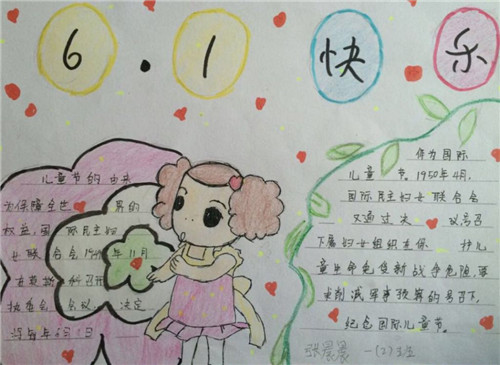 6.1快乐
儿童节的由来
为保障全世 男的
权益,国际民主妇
女联合会1949年11月
在莫斯科召开
执委会会议,决定
每年6月1日
作为国际
儿童节。1950年4月,
国际民主妇女联合会
又通过 号召
下属妇女组织 护儿
童生命免受新战争危险
削减军事预算的号召下,
纪念国际儿童节。
张晨晨 一(2)